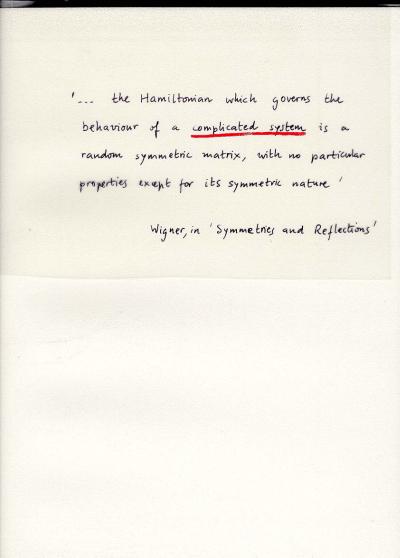 '... the Hamiltonian which governs the
behaviour of a complicated system is a
random symmetric matrix, with no particular
properties except for its symmetric nature'
Wigner, in 'Symmetries and Reflections'